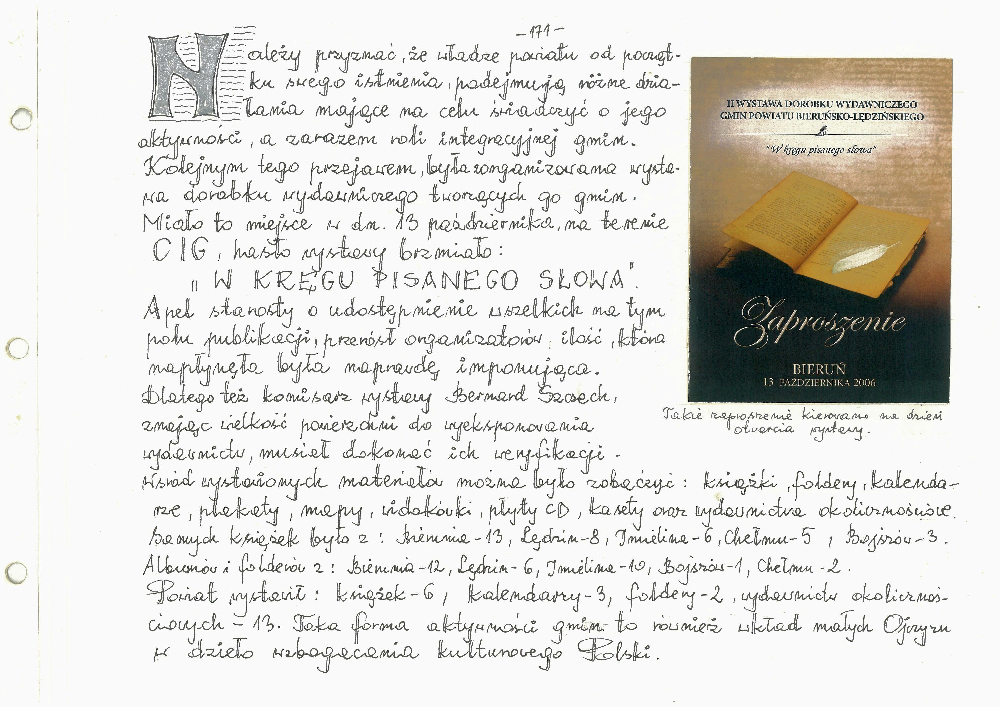 - 171 -
Należy przyznać, że władze powiatu od począt-
ku swego istnienia, podejmują różne dzia-
łania mające na celu świadczyć o jego
aktywności, a zarazem roli integracyjnej gmin.
Kolejnym tego przejawem, była zorganizowana wysta-
wa dorobku wydawniczego tworzących go gmin.
Miało to miejsce w dn. 13 października, na terenie
CIG, hasło wystawy brzmiało:
"W KRĘGU PISANEGO SŁOWA".
Apel starosty o udostępnienie wszelkich na tym
polu publikacji, przerósł organizatorów, ilość, która
napłynęła była naprawdę imponująca.
Dlatego też komisarz wystawy Bernard Szczech,
znając wielkość powierzchni do wyeksponowania
wydawnictw, musiał dokonać ich weryfikacji.
Wśród wystawionych materiałów można było zobaczyć: książki, foldery, kalenda-
rze, plakaty, mapy, widokówki, płyty CD, kasety oraz wydawnictwa okolicznościowe.
Samych książek było z: Bierunia-13, Lędzin-8, Imielina-6, Chełmu-5, Bojszów-3.
Albumów i folderów z: Bierunia-12, Lędzin-6, Imielina-10, Bojszów-1, Chełmu-2.
Powiat wystawił: książek-6, kalendarzy-3, foldery-2, wydawnictw okoliczno-
ściowych-13. Taka forma aktywności gmin to również wkład małych Ojczyzn
w dzieło wzbogacania kulturowego Polski.
II WYSTAWA DOROBKU WYDAWNICZEGO
GMIN POWIATU BIERUŃSKO-LĘDZIŃSKIEGO
"W kręgu pisanego słowa"
Zaproszenie
BIERUŃ
13 PAŹDZIERNIKA 2006
Takie zaproszenie kierowano na dzień
otwarcia wystawy.